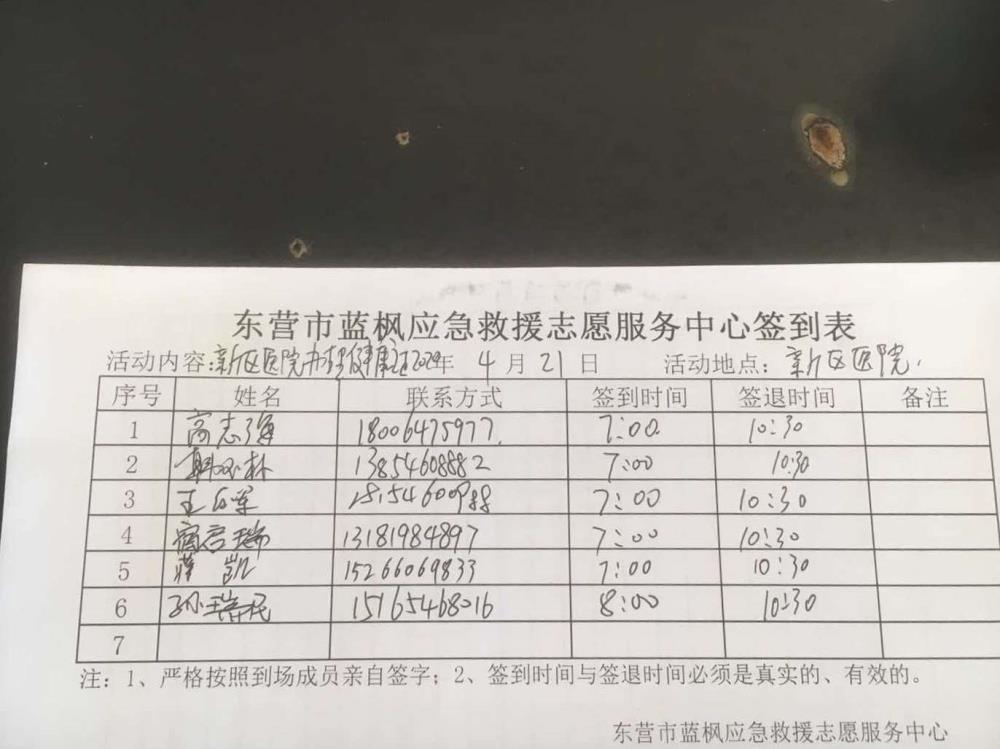 东营市蓝枫应急救援志愿服务中心签到表
活动内容：新区医院办理健康证2020年 4月21日 活动地点：新区医院.
序号 姓名 联系方式 签到时间 签退时间 备注
1 高志强 18006475977 7:00 10:30
2 13854608882 7:00 10:30
3 王 7:00 10:30
4 13181984897 7:00 10:30
5 蒋凯 15266069833 7:00 10:30
6 孙瑞民 15165468016 8:00 10:30
7
注：1、严格按照到场成员亲自签字；2、签到时间与签退时间必须是真实的、有效的。
东营市蓝枫应急救援志愿服务中心